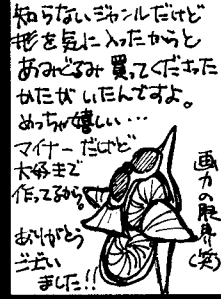 知らないジャンルだけど
形を気に入ったからと
あみぐるみ買ってくださった
かたがいたんですよ。
めっちゃ嬉しい…
マイナーだけど
大好きで
作ってるから。
ありがとう
ござい
ました!!
画力の限界(笑)